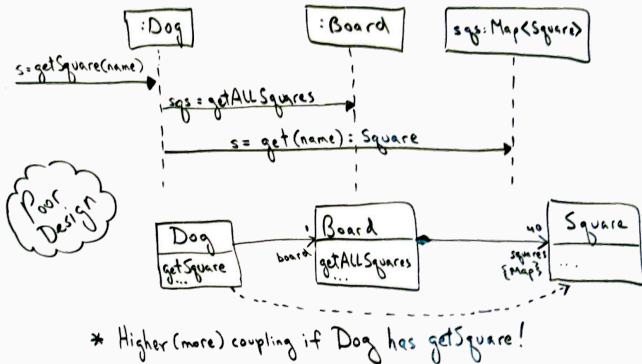 :Dog
:Board
sqs: Map<Square>
s=getSquare(name)
sqs = getALLSquares
s= get(name): Square
Poor
Design
Dog
getSquare
...
1
board
Board
getALLSquares
...
40
squares
{Map}
Square
....
* Higher (more) coupling if Dog has getSquare!